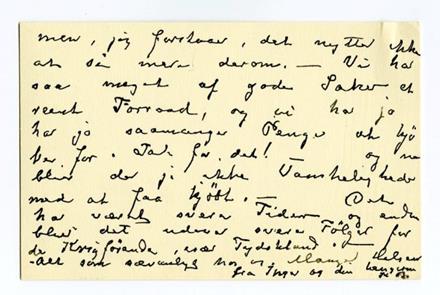 men, jeg forstaar, det nytter ikke
at si mere derom. — Vi har
saa meget af gode Saker et
Forraad, og vi har jo
har jo saamange Penger at kjø
be for. Tak for det! — og nu
blir der jo ikke Vanskeligheder
med at faa kjøbt. — Det
har været svære Tider og endnu
blir det svære Følger for
de Krigførende, især Tydskland.
-Alt som sævanlyt hos os. Mange Hilsener
fra Inger og din